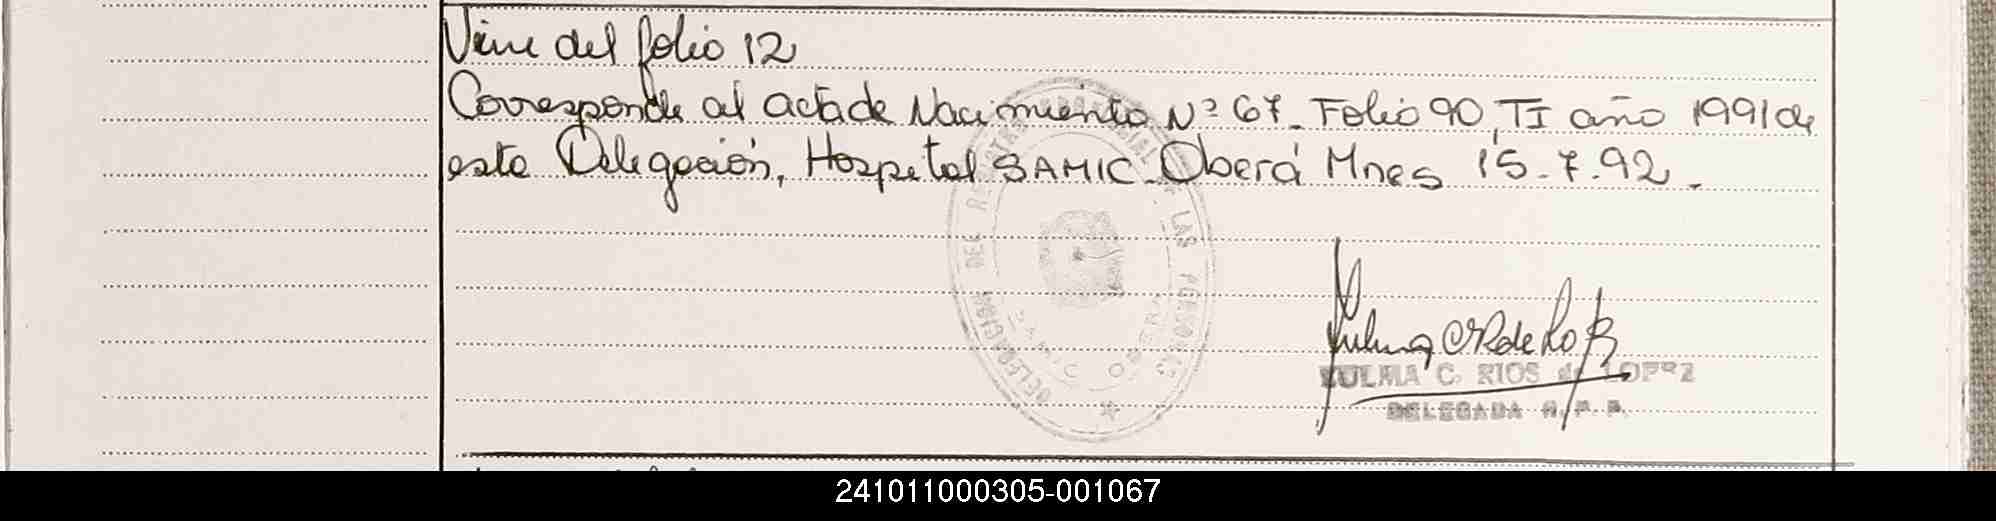 Viene del folio 12
Corresponde al acta de Nacimiento Nº 67. Folio 90, TI año 1991 de
esta Delegación, Hospital SAMIC. Oberá Mnes 15.7.92.
DELEGACION DEL REGISTRO PROVINCIAL DE LAS PERSONAS
SAMIC OBERA
ZULMA C. RIOS de LOPEZ
DELEGADA R. P. P.
241011000305-001067